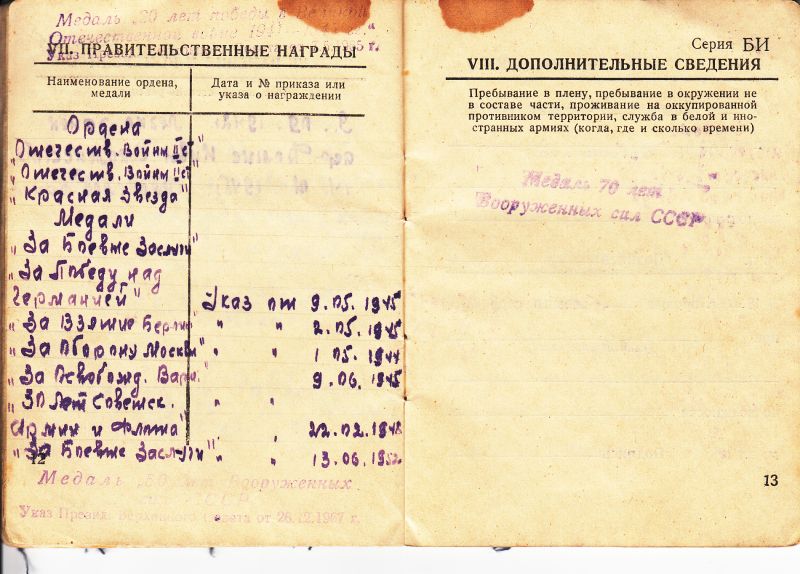 Медаль „20 лет победы в Великой
Отечественной войне 1941
VII. ПРАВИТЕЛЬСТВЕННЫЕ НАГРАДЫ
Указ
Наименование ордена, медали
Дата и № приказа или указа о награждении
Ордена
"Отечеств. Войны II ст"
"Отечеств. Войны II ст"
"Красная Звезда"
Медали
"За Боевые Заслуги"
"За Победу над
Германией" Указ от 9.05.1945
"За Взятие Берлина " " 2.05.1945
"За Оборону Москвы" " " 1 05.1944
"За Освобожд. Варш. 9.06.1945
"30 Лет Советск. " "
Армии и Флота" 22.02.1948
"За Боевые Заслуги" " " 13.06.1952
12
Медаль „50 лет Вооруженных
сил СССР
Указ Презид. Верховного Совета от 26.12.1967 г.
Серия БИ
VIII. ДОПОЛНИТЕЛЬНЫЕ СВЕДЕНИЯ
Пребывание в плену, пребывание в окружении не
в составе части, проживание на оккупированной
противником территории, служба в белой и ино-
странных армиях (когда, где и сколько времени)
Медаль 70 лет
Вооруженных сил СССР
13